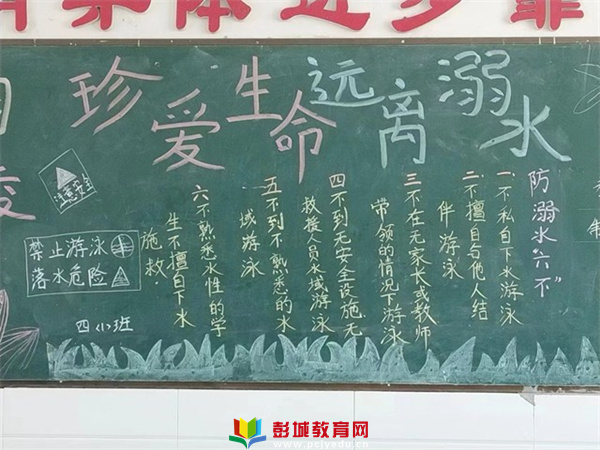 集体进步靠
珍爱生命远离溺水
防溺水“六不”
一不私自下水游泳
二不擅自与他人结
伴游泳
三不在无家长或教师
带领的情况下游泳
四不到无安全设施、无
救援人员水域游泳
五不到不熟悉的水
域游泳
六不熟悉水性的学
生不擅自下水
施救.
注意安全
禁止游泳
落水危险
四(1)班
彭城教育网
www.pcjyedu.cn